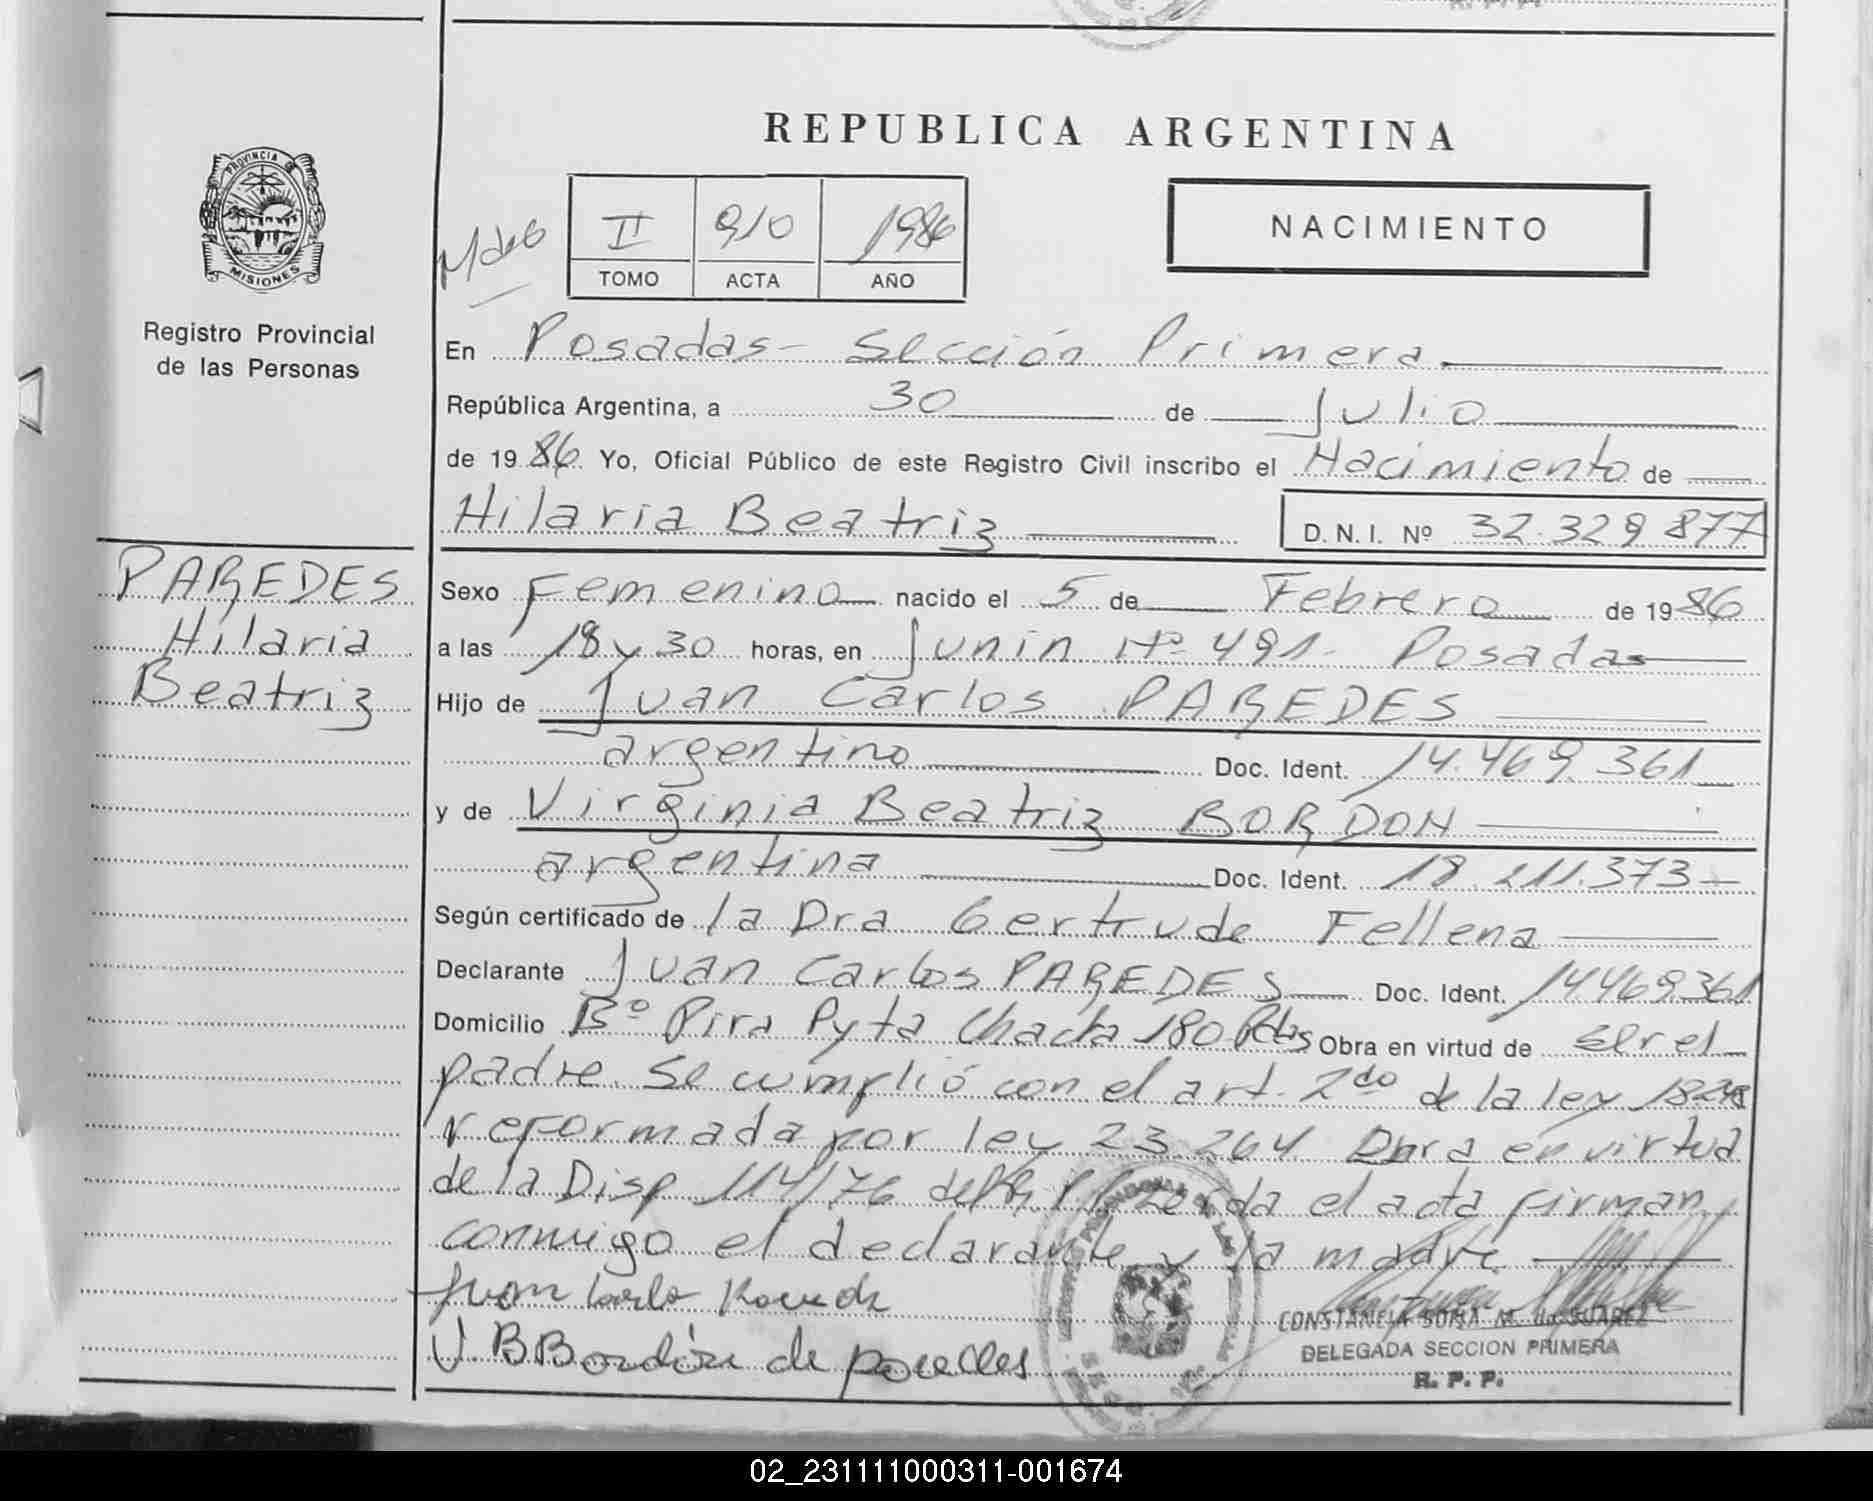 REPUBLICA ARGENTINA
PROVINCIA DE
MISIONES
Registro Provincial
de las Personas
II 910 1986
TOMO ACTA AÑO
NACIMIENTO
En Posadas - Sección Primera
República Argentina, a 30 de Julio
de 1986 Yo, Oficial Público de este Registro Civil inscribo el Nacimiento de
Hilaria Beatriz D. N. I. Nº 32.329.877
PAREDES
Hilaria
Beatriz
Sexo Femenino nacido el 5 de Febrero de 1986
a las 18 y 30 horas, en Junin Nº 491- Posadas
Hijo de Juan Carlos PAREDES
argentino Doc. Ident. 14.469.361
y de Virginia Beatriz BORDON
argentina Doc. Ident. 18.211.373
Según certificado de la Dra Gertrude Fellena
Declarante Juan Carlos PAREDES Doc. Ident. 14469361
Domicilio Bº Pira Pyta Chacra 180 Pdas Obra en virtud de ser el
padre. Se cumplió con el art. 2do de la ley 18248
reformada por ley 23.264 Obra en virtud
de la Disp 114/76 del leida el acta firman
conmigo el declarante y la madre
Juan Carlos Paredes
V. B Bordón de paredes
CONSTANCIA SOFIA M. de SUAREZ
DELEGADA SECCION PRIMERA
R. P. P.
02_231111000311-001674